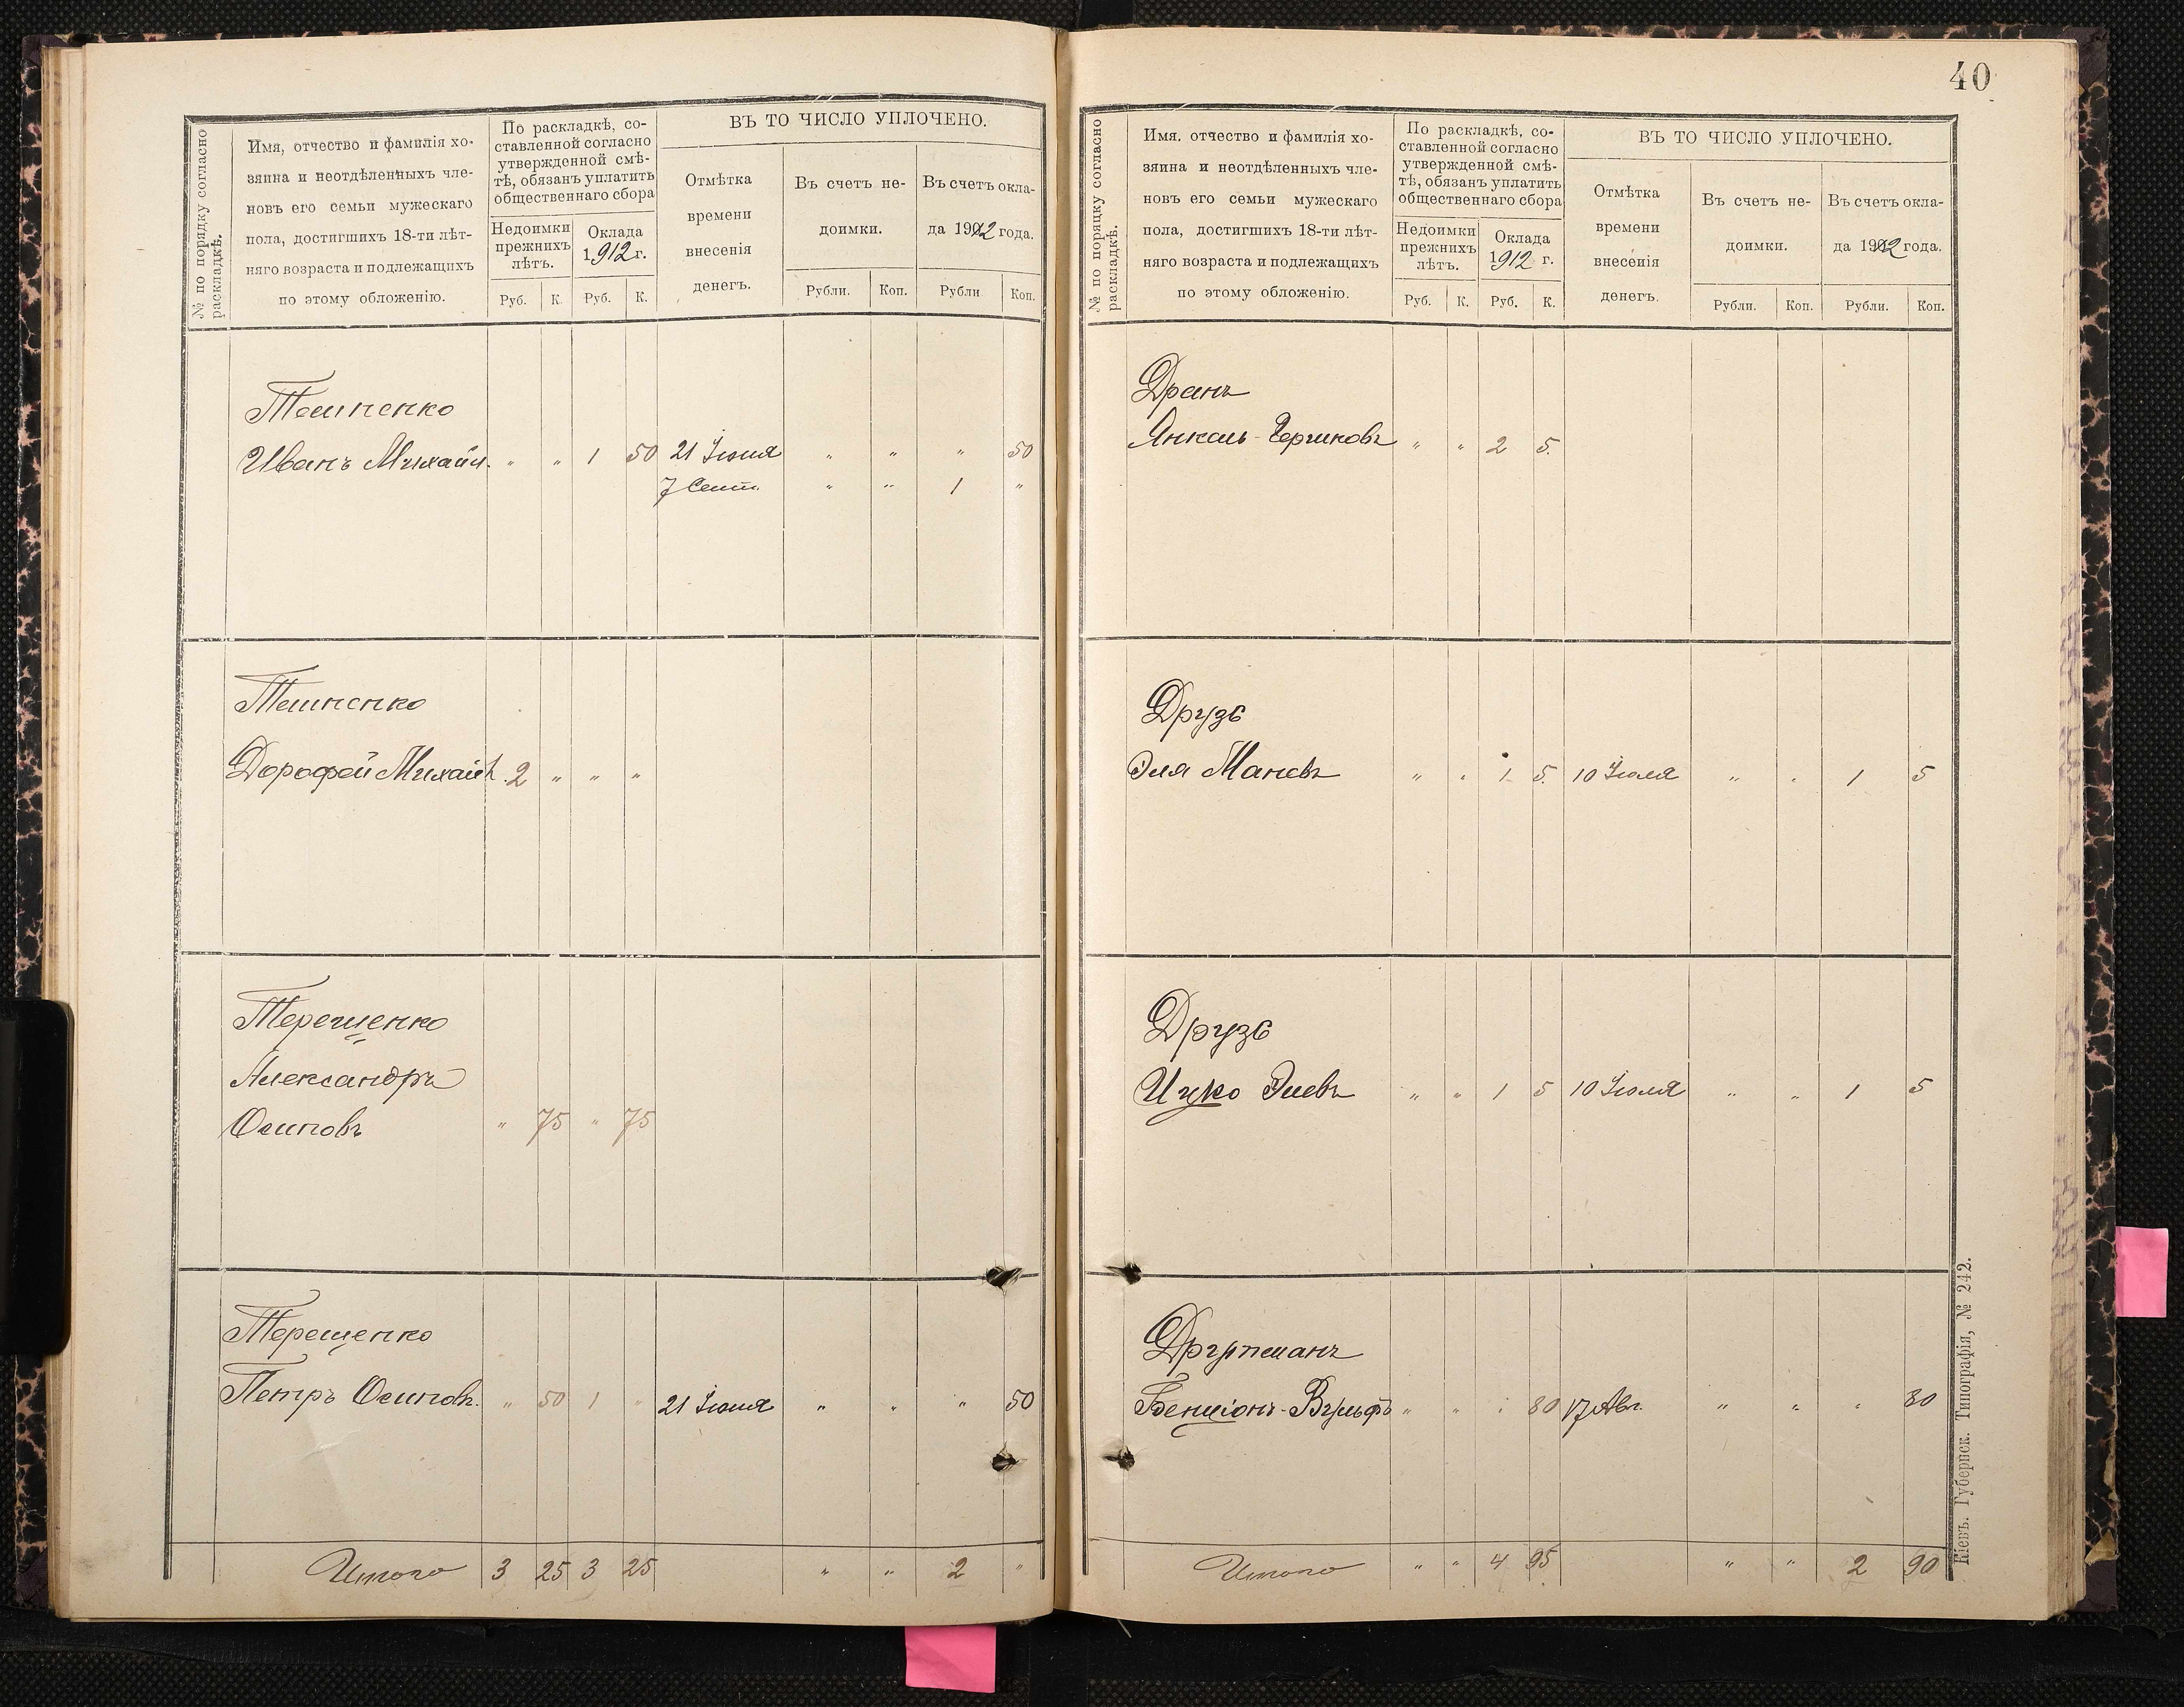 № по порядку согласно
раскладкѣ.
Имя, отчество и фамилія хо-
зяина и неотдѣленныхъ чле-
новъ его семьи мужескаго
пола, достигшихъ 18-ти лѣт-
няго возраста и подлежащихъ
по этому обложенію.
По раскладкѣ, со-
ставленной согласно
утвержденной смѣ-
тѣ, обязанъ уплатить
общественнаго сбора
Недоимки
прежнихъ
лѣтъ.
Оклада
1912 г.
Руб. К. Руб. К.
ВЪ ТО ЧИСЛО УПЛОЧЕНО.
Отмѣтка
времени
внесенія
денегъ.
Въ счетъ не-
доимки.
Въ счетъ окла-
да 1912 года.
Рубли. Коп. Рубли Коп.
Тешпенко
Иванъ Михайл. " " 1 50 21 Іюня " " " 50
7 Сент. " " 1 "
Тешпенко
Дорофей Михайл. 2 " " "
Терещенко
Александръ
Осиповъ " 75 " 75
Терещенко
Петръ Осиповъ. " 50 1 " 21 Іюня " " " 50
Итого 3 25 3 25 " " 2 "
40
№ по порядку согласно
раскладкѣ.
Имя, отчество и фамилія хо-
зяина и неотдѣленныхъ чле-
новъ его семьи мужескаго
пола, достигшихъ 18-ти лѣт-
няго возраста и подлежащихъ
по этому обложенію.
По раскладкѣ, со-
ставленной согласно
утвержденной смѣ-
тѣ, обязанъ уплатить
общественнаго сбора
Недоимки
прежнихъ
лѣтъ.
Оклада
1912 г.
Руб. К. Руб. К.
ВЪ ТО ЧИСЛО УПЛОЧЕНО.
Отмѣтка
времени
внесенія
денегъ.
Въ счетъ не-
доимки.
Въ счетъ окла-
да 1912 года.
Рубли. Коп. Рубли. Коп.
Дранъ
Янкель-Гершковъ " " 2 5
Друзь
Эля Маневъ " " 1 5 10 Іюля " " 1 5
Друзь
Ицко Элевъ " " 1 5 10 Іюля " " 1 5
Друпманъ
Бенціонъ-Вульфъ " " " 80 17 Авг. " " " 80
Итого " " 4 95 " " 2 90
Кіевъ. Губернск. Типографія, № 242.